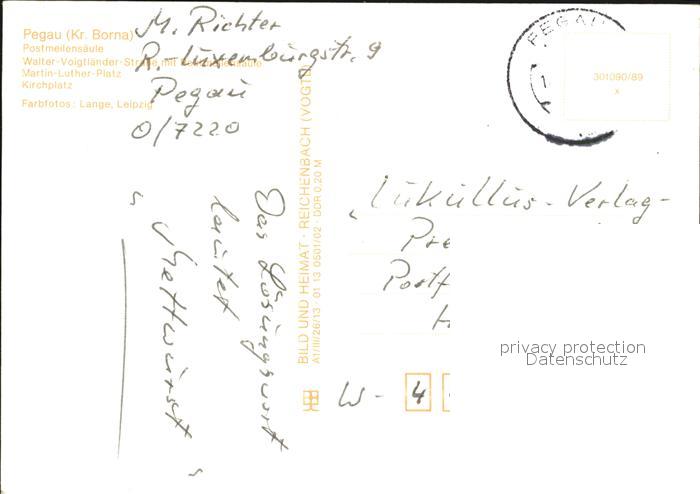 Pegau (Kr. Borna)
Postmeilensäule
Walter-Voigtländer-Straße mit
Martin-Luther-Platz
Kirchplatz
Farbfotos: Lange, Leipzig
M. Richter
R.-Luxemburgstr. 9
Pegau
O/7220
Das Lösungswort
lautet
"Mettwurst"
BILD UND HEIMAT · REICHENBACH (VOGTL)
A1/III/26/13 · 01 13 0501/02 · DDR 0,20 M
PEGAU
301090/89
x
"Lukullus-Verlag-
Pre
Postf
W - 4
privacy protection
Datenschutz